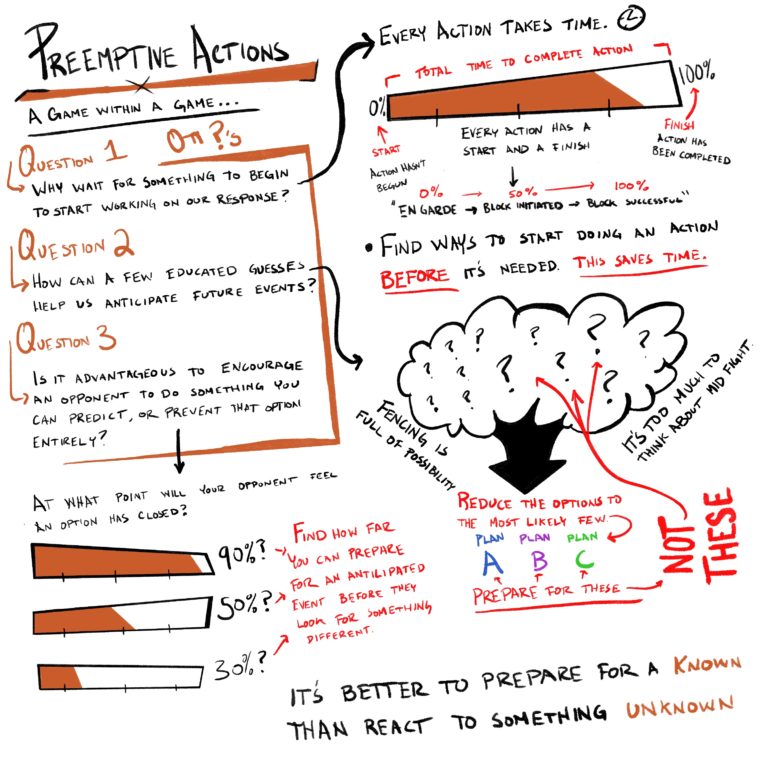 PREEMPTIVE ACTIONS
A GAME WITHIN A GAME...
QUESTION 1
WHY WAIT FOR SOMETHING TO BEGIN
TO START WORKING ON OUR RESPONSE?
QUESTION 2
HOW CAN A FEW EDUCATED GUESSES
HELP US ANTICIPATE FUTURE EVENTS?
QUESTION 3
IS IT ADVANTAGEOUS TO ENCOURAGE
AN OPPONENT TO DO SOMETHING YOU
CAN PREDICT, OR PREVENT THAT OPTION
ENTIRELY?
AT WHAT POINT WILL YOUR OPPONENT FEEL
AN OPTION HAS CLOSED?
90%?
50%?
30%?
FIND HOW FAR
YOU CAN PREPARE
FOR AN ANTICIPATED
EVENT BEFORE THEY
LOOK FOR SOMETHING
DIFFERENT.
EVERY ACTION TAKES TIME. 2
TOTAL TIME TO COMPLETE ACTION
0%
100%
START
ACTION HASN'T
BEGUN
EVERY ACTION HAS A
START AND A FINISH
FINISH
ACTION HAS
BEEN COMPLETED
0% → 50% → 100%
"EN GARDE → BLOCK INITIATED → BLOCK SUCCESSFUL"
• FIND WAYS TO START DOING AN ACTION
BEFORE IT'S NEEDED. THIS SAVES TIME.
? ? ? ? ? ? ? ? ? ? ? ?
FENCING IS
FULL OF POSSIBILITY
IT'S TOO MUCH TO
THINK ABOUT MID FIGHT.
REDUCE THE OPTIONS TO
THE MOST LIKELY FEW.
PLAN PLAN PLAN
A B C
PREPARE FOR THESE
NOT
THESE
IT'S BETTER TO PREPARE FOR A KNOWN
THAN REACT TO SOMETHING UNKNOWN